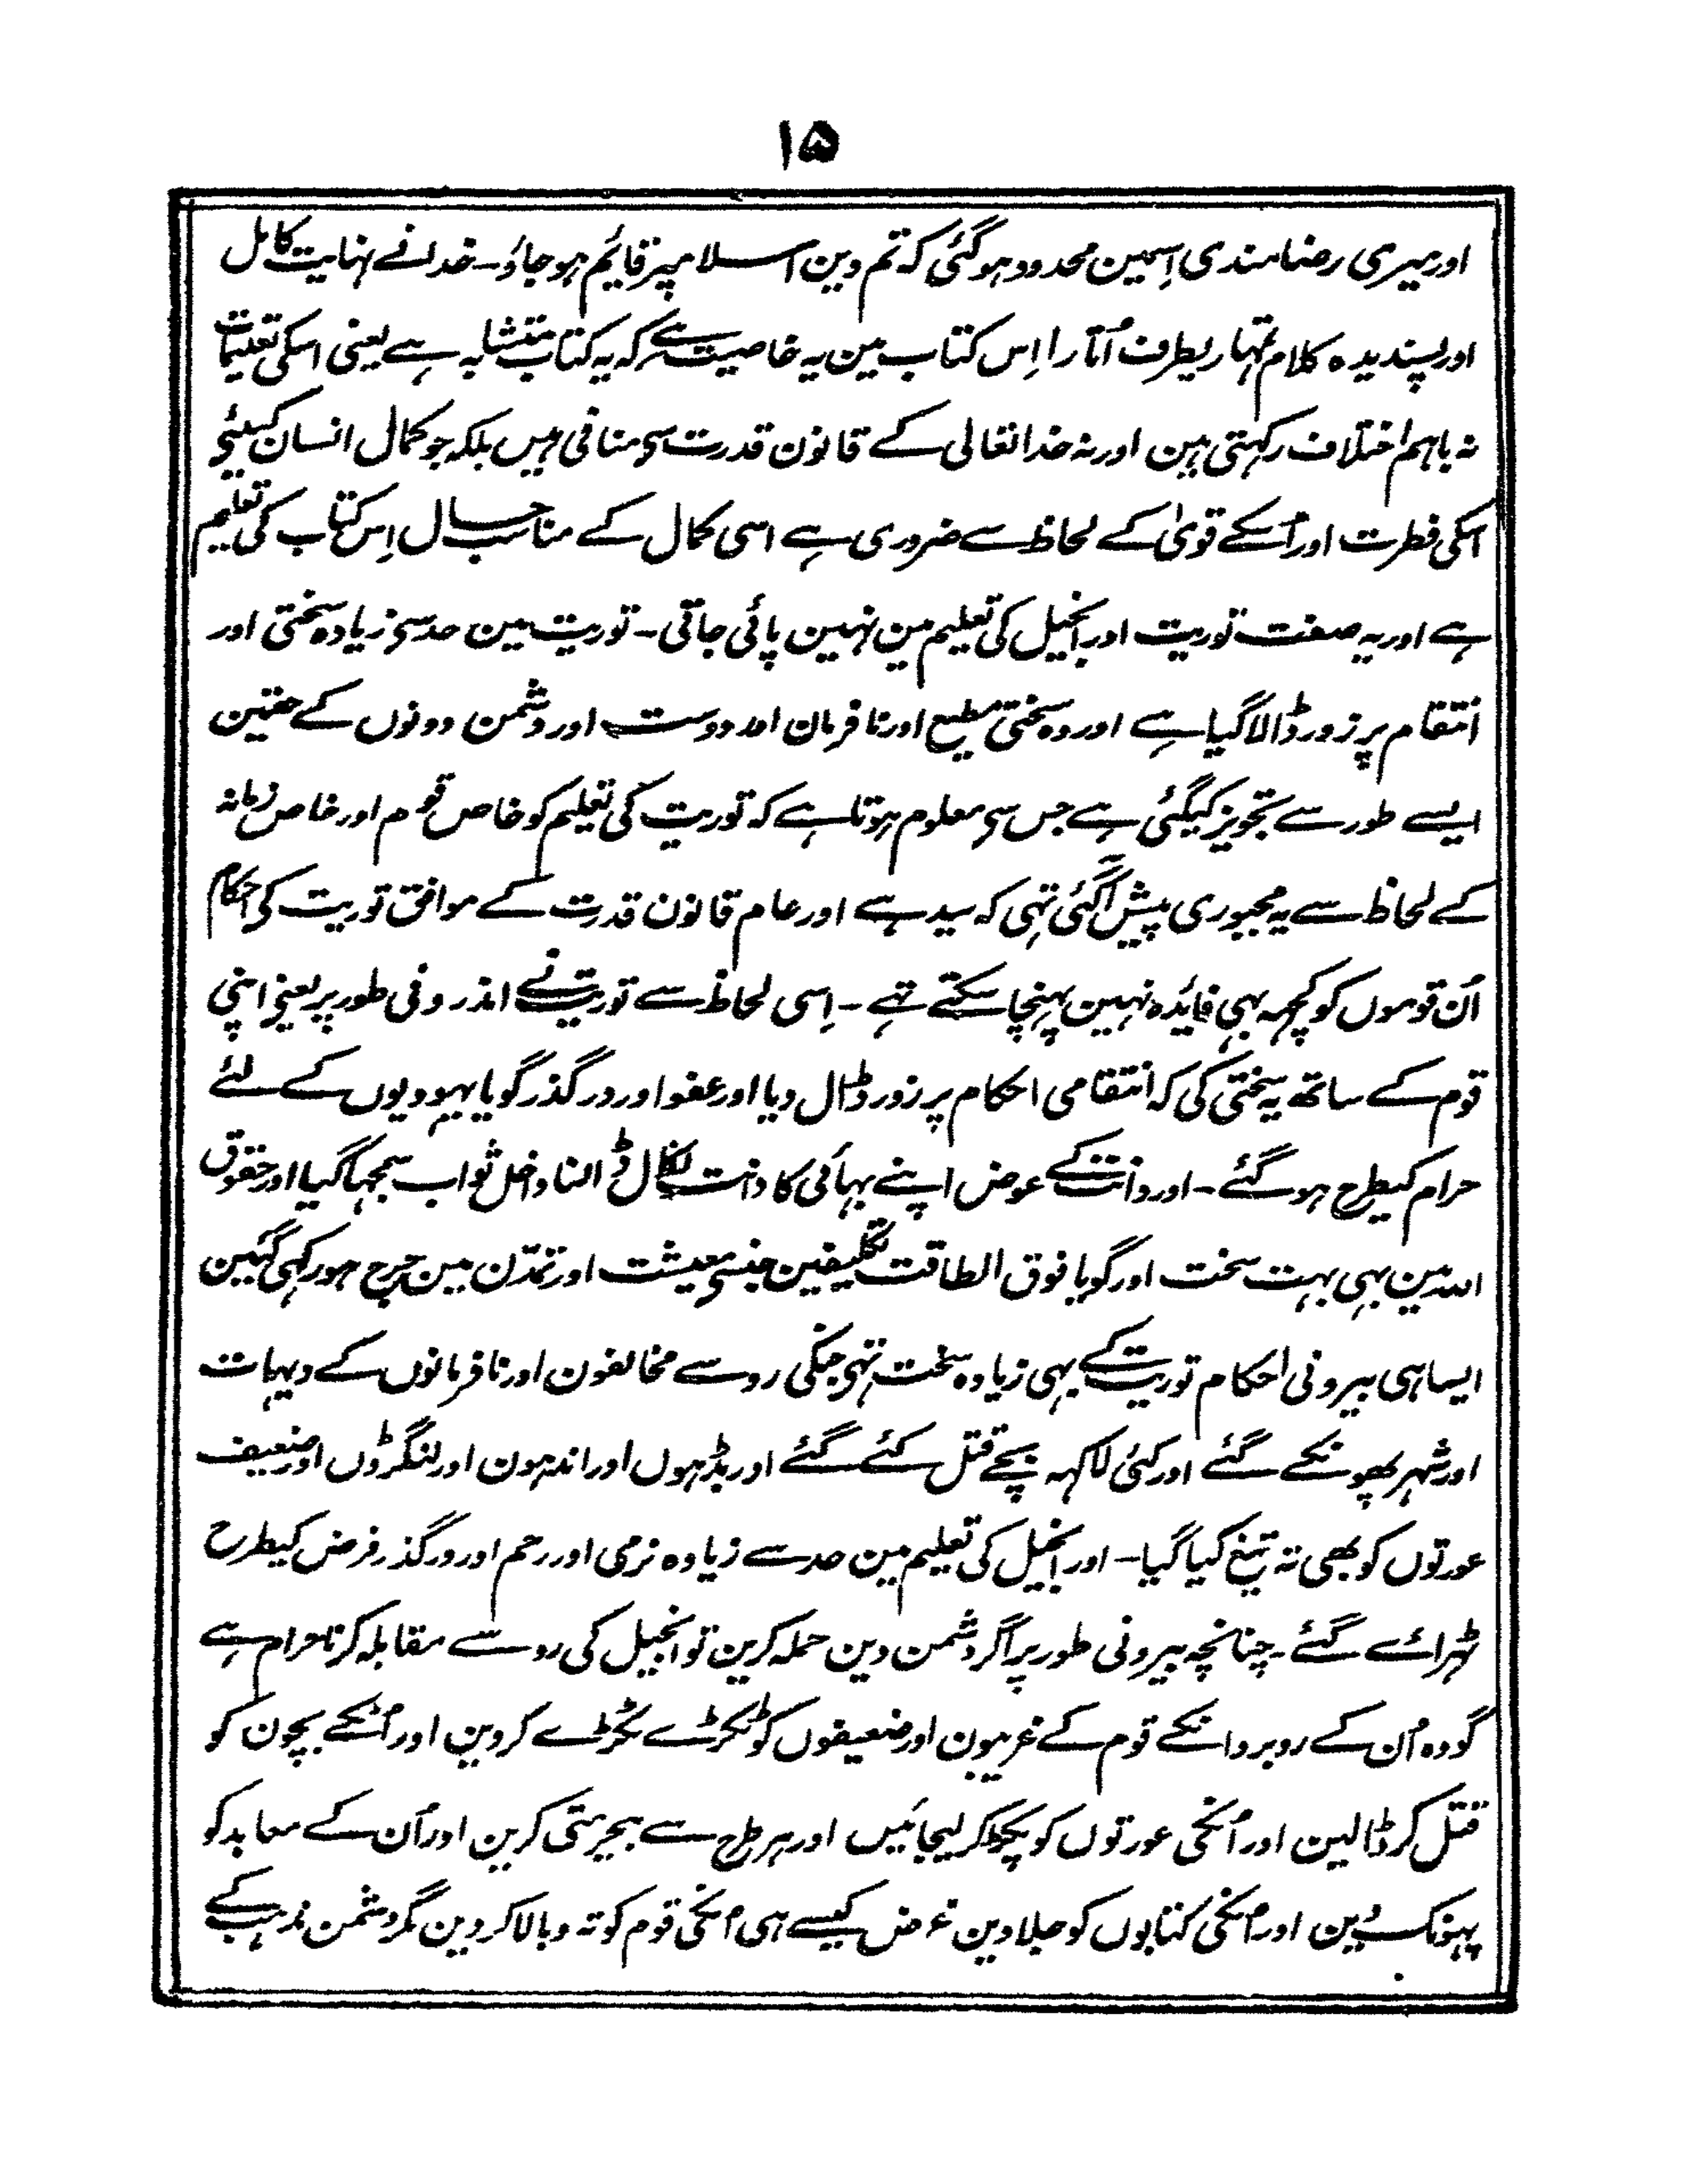 ۱۵
اور میری رضامندی اِسمین محدود ہوگئی کہ تم دین اسلامپر قایٔم ہو جاؤ۔ خدا نے نہایت کامل
اور پسندیدہ کلام تمہاریطرف اُتارا اِس کتاب مین یہ خاصیت ہے کہ یہ کتاب متشابہ ہے یعنی اسکی تعلیمات
نہ باہم اختلاف رکہتی ہین اور نہ خدا تعالی کے قانون قدرت سی منافی ہیں بلکہ جو کمال انسان کیلئے
اسکی فطرت اور اُسکے قویٰ کے لحاظ سے ضروری ہے اسی کمال کے مناسب حال اِس کتاب کی تعلیم
ہے اور یہ صفت توریت اور انجیل کی تعلیم مین نہین پائی جاتی۔ توریت مین حد سی زیادہ سختی اور
انتقام پر زور ڈالا گیا ہے اور وہ سختی مطیع اور نافرمان اور دوست اور دشمن دونوں کے حقمین
ایسے طور سے تجویز کیگئی ہے جس سی معلوم ہوتا ہے کہ توریت کی تعلیم کو خاص قوم اور خاص زمانہ
کے لحاظ سے یہ مجبوری پیش آگئی تہی کہ سیدہے اور عام قانون قدرت کے موافق توریت کی احکام
اُن قوموں کو کچھہ بہی فایٔدہ نہین پہنچا سکتے تہے۔ اِسی لحاظ سے توریت نے اندرونی طور پر یعنی اپنی
قوم کے ساتھ یہ سختی کی کہ انتقامی احکام پر زور ڈال دیا اور عفو اور درگذر گویا یہودیوں کے لئے
حرام کیطرح ہوگئے۔ اور دانت کے عوض اپنے بہائی کا دانت نکال ڈالنا داخل ثواب سمجہا گیا اور حقوق
اللہ مین بہی بہت سخت اور گویا فوق الطاقت تکلیفین جنسی معیشت اور تمدّن مین حرج ہو رکہی گئین
ایسا ہی بیرونی احکام توریت کے بہی زیادہ سخت تہی جنکی رو سے مخالفون اور نافرمانوں کے دیہات
اور شہر پھونکے گئے اور کئی لاکہہ بچے قتل کئے گئے اور بڈہوں اور اندہون اور لنگڑوں اور ضعیف
عورتوں کو بھی تہ تیغ کیا گیا۔ اور انجیل کی تعلیم مین حد سے زیادہ نرمی اور رحم اور درگذر فرض کیطرح
ٹہرائے گئے۔ چنانچہ بیرونی طور پر اگر دشمن دین حملہ کرین تو انجیل کی رو سے مقابلہ کرنا حرام ہے
گو وہ اُن کے روبرو انکے قوم کے غریبون اور ضعیفوں کو ٹکڑے ٹکڑے کر دین اور اُنکے بچون کو
قتل کر ڈالین اور اُنکی عورتوں کو پکڑ کر لیجائیں اور ہر طرح سے بیحرمتی کرین اور اُن کے معابد کو
پہونک دین اور اُنکی کتابوں کو جلا دین غرض کیسے ہی اُنکی قوم کو تہ و بالا کر دین مگر دشمن مذہب کے